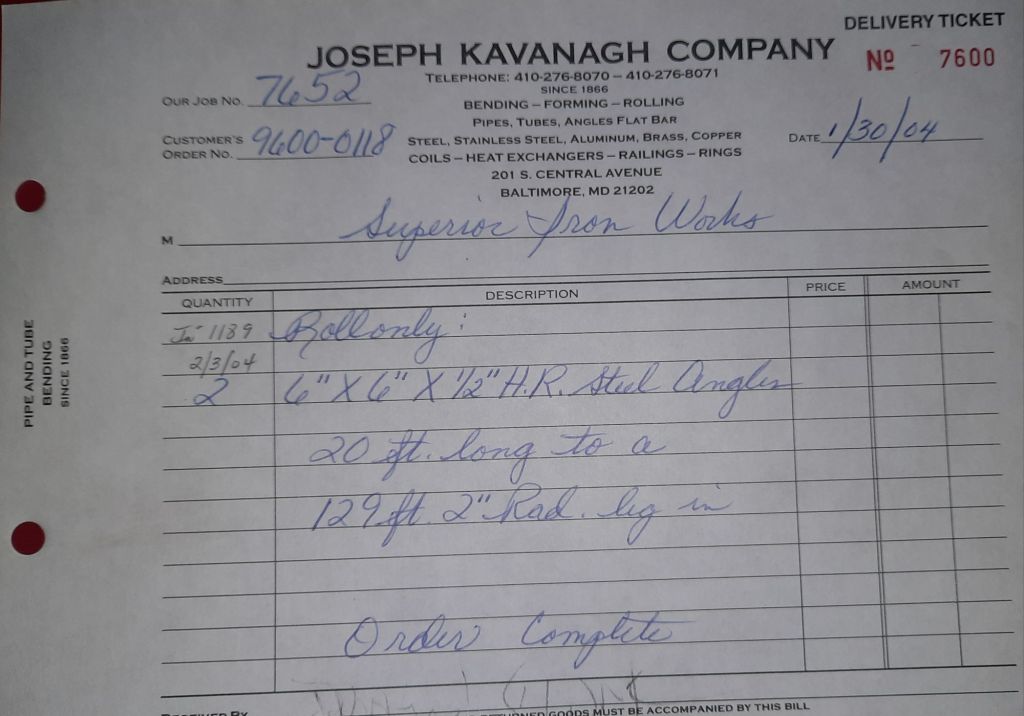 DELIVERY TICKET
JOSEPH KAVANAGH COMPANY
Nº 7600
TELEPHONE: 410-276-8070 – 410-276-8071
SINCE 1866
OUR JOB NO. 7652
BENDING – FORMING – ROLLING
PIPES, TUBES, ANGLES FLAT BAR
CUSTOMER'S
ORDER NO. 9600-0118
STEEL, STAINLESS STEEL, ALUMINUM, BRASS, COPPER
DATE 1/30/04
COILS – HEAT EXCHANGERS – RAILINGS – RINGS
201 S. CENTRAL AVENUE
BALTIMORE, MD 21202
M Superior Iron Works
ADDRESS
QUANTITY DESCRIPTION PRICE AMOUNT
1189 Roll only:
2/3/04
2 6" X 6" X 1/2" H.R. Steel Angles
20 ft. long to a
129 ft. 2" Rad. leg in
Order Complete
RECEIVED BY
RETURNED GOODS MUST BE ACCOMPANIED BY THIS BILL
PIPE AND TUBE
BENDING
SINCE 1866